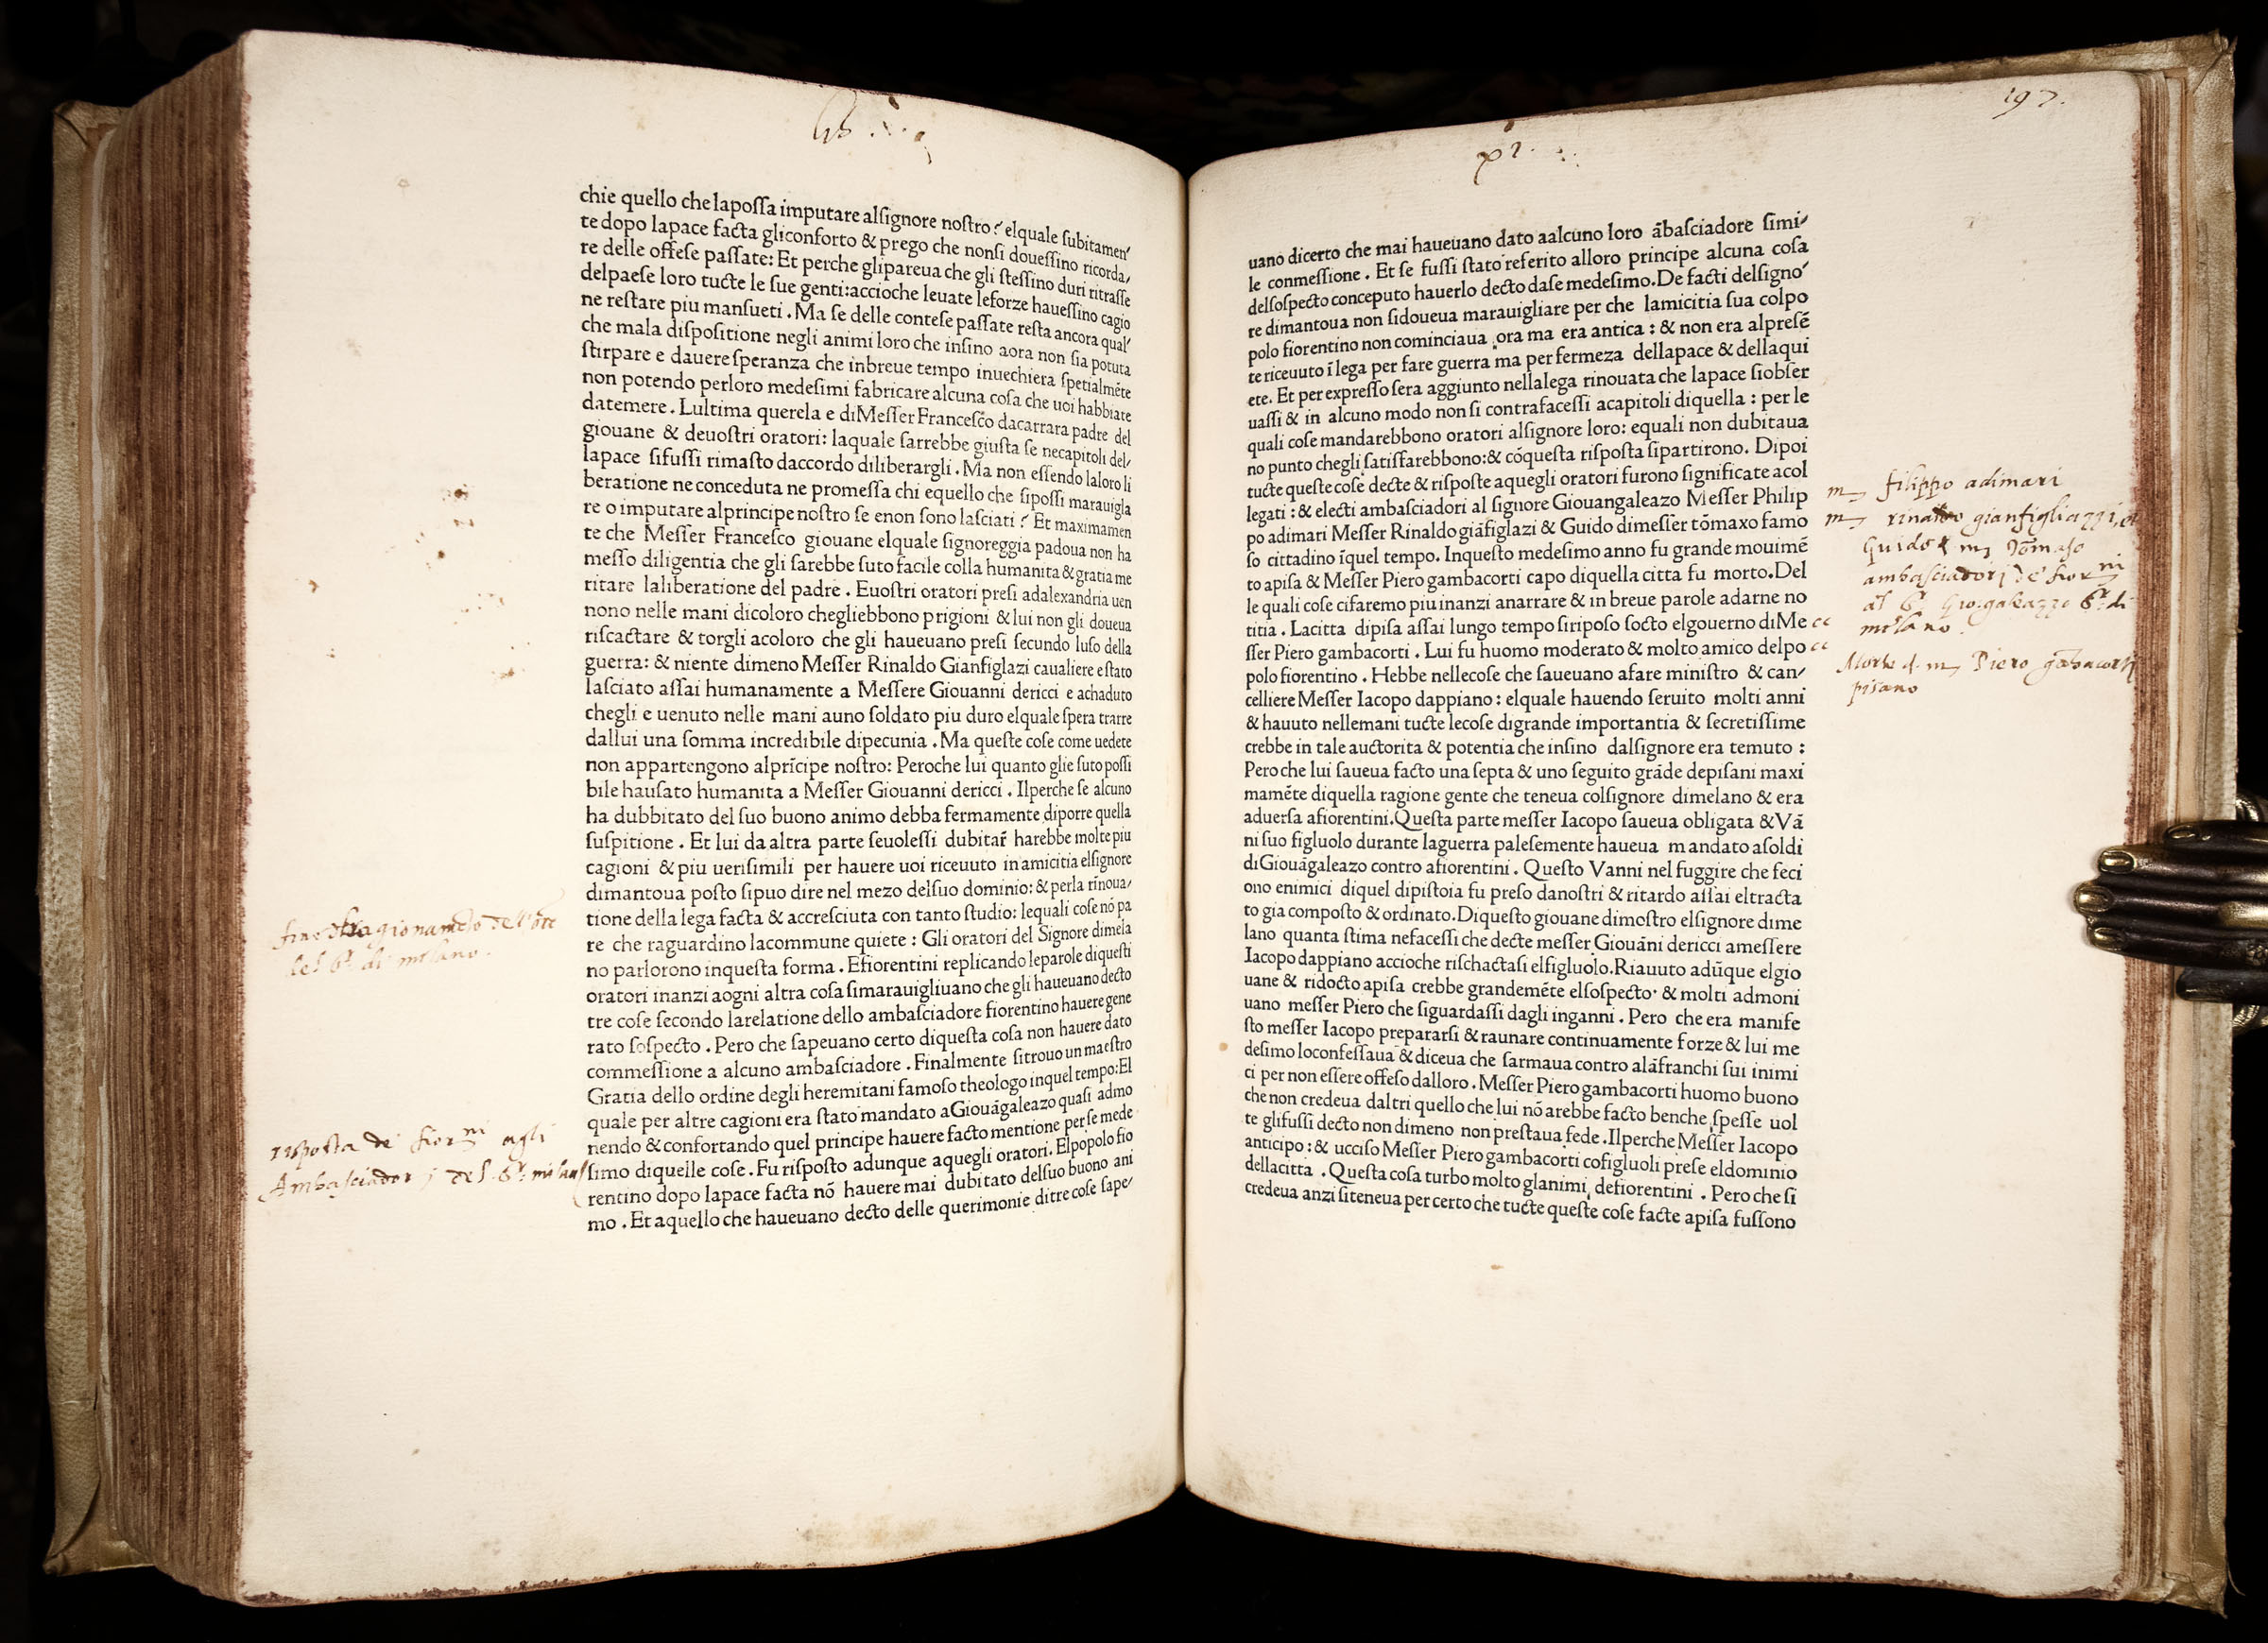 lib
chie quello che lapoſſa imputare alſignore noſtro? elquale ſubitamen
te dopo lapace facta gliconforto & prego che nonſi doueſſino ricorda
re delle offeſe paſſate: Et perche glipareua che gli ſteſſino duri ritraſſe
delpaeſe loro tucte le ſue genti:accioche leuate leforze haueſſino cagio
ne reſtare piu manſueti . Ma ſe delle conteſe paſſate reſta ancora qual
che mala diſpoſitione negli animi loro che inſino aora non ſia potuta
ſtirpare e dauere ſperanza che inbreue tempo inuechiera ſpetialmēte
non potendo perloro medeſimi fabricare alcuna coſa che uoi habbiate
datemere . Lultima querela e diMeſſer Franceſco dacarrara padre del
giouane & deuoſtri oratori: laquale ſarrebbe giuſta ſe necapitoli del
lapace ſifuſſi rimaſto daccordo diliberargli . Ma non eſſendo laloro li
beratione ne conceduta ne promeſſa chi equello che ſipoſſi marauigla
re o imputare alprincipe noſtro ſe enon ſono laſciati ? Et maximamen
te che Meſſer Franceſco giouane elquale ſignoreggia padoua non ha
meſſo diligentia che gli ſarebbe ſuto facile colla humanita & gratia me
ritare laliberatione del padre . Euoſtri oratori preſi adalexandria uen
nono nelle mani dicoloro chegliebbono prigioni & lui non gli doueua
riſcactare & torgli acoloro che gli haueuano preſi ſecundo luſo della
guerra: & niente dimeno Meſſer Rinaldo Gianfiglazi caualiere e ſtato
laſciato aſſai humanamente a Meſſere Giouanni dericci e achaduto
chegli e uenuto nelle mani auno ſoldato piu duro elquale ſpera trarre
dallui una ſomma incredibile dipecunia . Ma queſte coſe come uedete
non appartengono alprīcipe noſtro: Peroche lui quanto glie ſuto poſſi
bile hauſato humanita a Meſſer Giouanni dericci . Ilperche ſe alcuno
ha dubbitato del ſuo buono animo debba fermamente diporre quella
ſuſpitione . Et lui da altra parte ſeuoleſſi dubitar̄ harebbe molte piu
cagioni & piu ueriſimili per hauere uoi riceuuto in amicitia elſignore
dimantoua poſto ſipuo dire nel mezo delſuo dominio: & perla rīnoua
tione della lega facta & accreſciuta con tanto ſtudio: lequali coſe nō pa
re che raguardino lacommune quiete : Gli oratori del Signore dimela
no parlorono inqueſta forma . Efiorentini replicando leparole diqueſti
oratori inanzi aogni altra coſa ſimarauigliuano che gli haueuano decto
tre coſe ſecondo larelatione dello ambaſciadore fiorentino hauere gene
rato ſoſpecto . Pero che ſapeuano certo diqueſta coſa non hauere dato
commeſſione a alcuno ambaſciadore . Finalmente ſitrouo un maeſtro
Gratia dello ordine degli heremitani famoſo theologo inquel tempo:El
quale per altre cagioni era ſtato mandato aGiouāgaleazo quaſi admo
nendo & confortando quel principe hauere facto mentione per ſe mede
ſimo diquelle coſe . Fu riſpoſto adunque aquegli oratori. Elpopolo fio
rentino dopo lapace facta nō hauere mai dubitato delſuo buono ani
mo . Et aquello che haueuano decto delle querimonie ditre coſe ſape
del Sr. di milano .
risposta de fiorni agli
Ambasciadorj del Sr: milano
197.
xi
uano dicerto che mai haueuano dato aalcuno loro ābaſciadore ſimi
le conmeſſione . Et ſe fuſſi ſtato referito alloro principe alcuna coſa
delſoſpecto conceputo hauerlo decto daſe medeſimo.De facti delſigno
re dimantoua non ſidoueua marauigliare per che lamicitia ſua colpo
polo fiorentino non cominciaua ora ma era antica : & non era alpreſē
te riceuuto ī lega per fare guerra ma per fermeza dellapace & dellaqui
ete. Et per expreſſo ſera aggiunto nellalega rinouata che lapace ſiobſer
uaſſi & in alcuno modo non ſi contrafaceſſi acapitoli diquella : per le
quali coſe mandarebbono oratori alſignore loro: equali non dubitaua
no punto chegli ſatisfarebbono:& cōqueſta riſpoſta ſipartirono. Dipoi
tucte queſte coſe decte & riſpoſte aquegli oratori furono ſignificate acol
legati : & electi ambaſciadori al ſignore Giouangaleazo Meſſer Philip
po adimari Meſſer Rinaldo giāfiglazi & Guido dimeſſer tōmaxo famo
ſo cittadino īquel tempo. Inqueſto medeſimo anno fu grande mouimē
to apiſa & Meſſer Piero gambacorti capo diquella citta fu morto.Del
le quali coſe cifaremo piu inanzi anarrare & in breue parole adarne no
titia . Lacitta dipiſa aſſai lungo tempo ſiripoſo ſocto elgouerno diMe
ſſer Piero gambacorti . Lui fu huomo moderato & molto amico delpo
polo fiorentino . Hebbe nellecoſe che ſaueuano afare miniſtro & can
celliere Meſſer Iacopo dappiano : elquale hauendo ſeruito molti anni
& hauuto nellemani tucte lecoſe digrande importantia & ſecretiſſime
crebbe in tale auctorita & potentia che inſino dalſignore era temuto :
Peroche lui ſaueua facto una ſepta & uno ſeguito grāde depiſani maxi
mamēte diquella ragione gente che teneua colſignore dimelano & era
aduerſa afiorentini.Queſta parte meſſer Iacopo ſaueua obligata & Vā
ni ſuo figluolo durante laguerra paleſemente haueua mandato aſoldi
diGiouāgaleazo contro afiorentini . Queſto Vanni nel fuggire che feci
ono enimici diquel dipiſtoia fu preſo danoſtri & ritardo aſſai eltracta
to gia compoſto & ordinato.Diqueſto giouane dimoſtro elſignore dime
lano quanta ſtima nefaceſſi che decte meſſer Giouāni dericci ameſſere
Iacopo dappiano accioche riſchactaſi elfigluolo.Riauuto adūque elgio
uane & ridocto apiſa crebbe grandemēte elſoſpecto & molti admoni
uano meſſer Piero che ſiguardaſſi dagli inganni . Pero che era manife
ſto meſſer Iacopo prepararſi & raunare continuamente forze & lui me
deſimo loconfeſſaua & diceua che ſarmaua contro alāfranchi ſui inimi
ci per non eſſere offeſo dalloro . Meſſer Piero gambacorti huomo buono
che non credeua daltri quello che lui nō arebbe facto benche ſpeſſe uol
te glifuſſi decto non dimeno non preſtaua fede .Ilperche Meſſer Iacopo
anticipo : & ucciſo Meſſer Piero gambacorti cofigluoli preſe eldominio
dellacitta . Queſta coſa turbo molto glanimi defiorentini . Pero che ſi
credeua anzi ſiteneua per certo che tucte queſte coſe facte apiſa fuſſono
m filippo adimari
m rinaldo gianfigliazzi, et
Guido m Tomaso
ambasciadorj de fiorni
al Sr. Gio: galeazzo Sr. di
milano .
Morte d. m Piero gābacorti
pisano